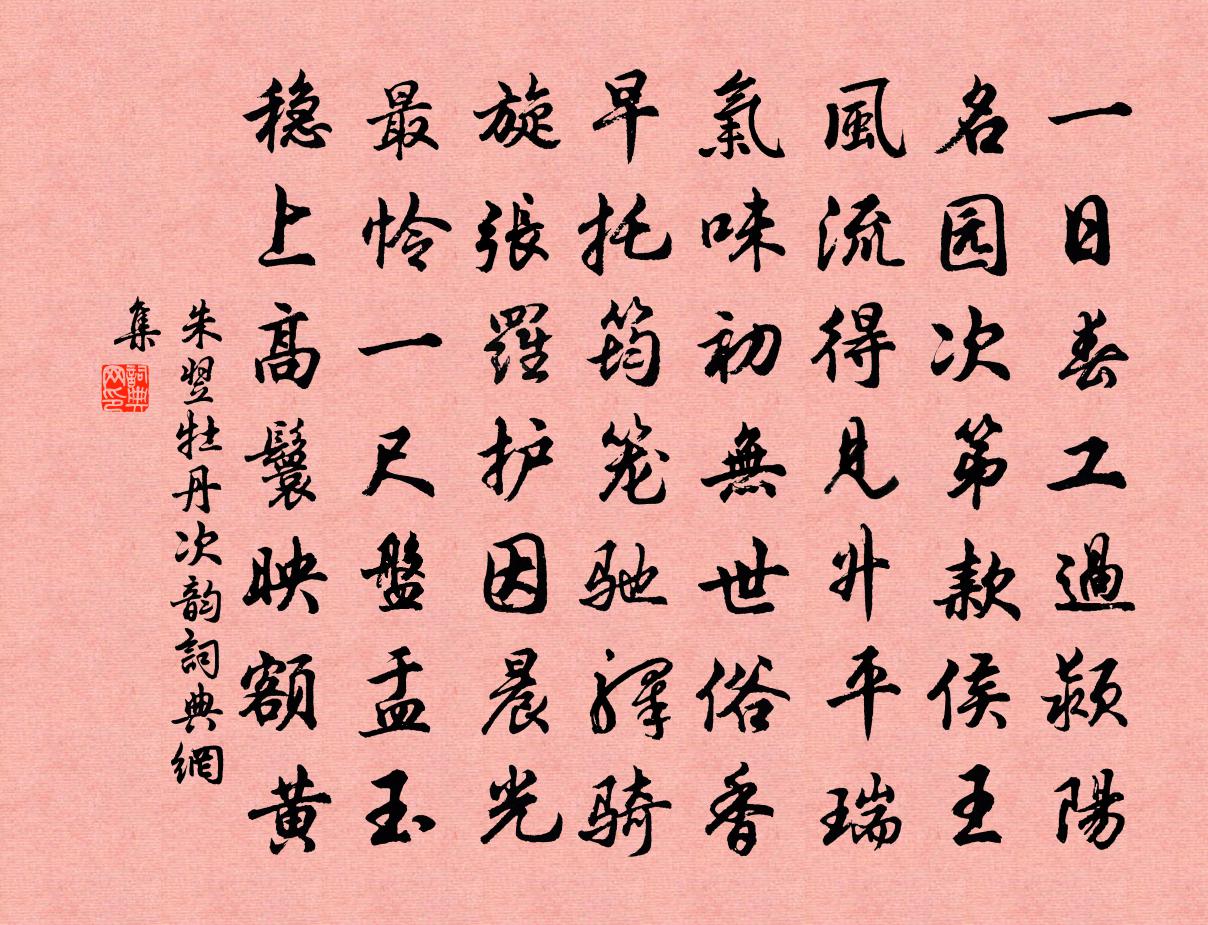 一日春工過颍陽
名园次第款侯王
風流得見升平瑞
氣味初無世俗香
早托筠笼驰驿骑
旋張羅护因晨光
最怜一尺盤盂玉
稳上高鬟映額黄
朱翌牡丹次韵詞典網
集
詞典
网印